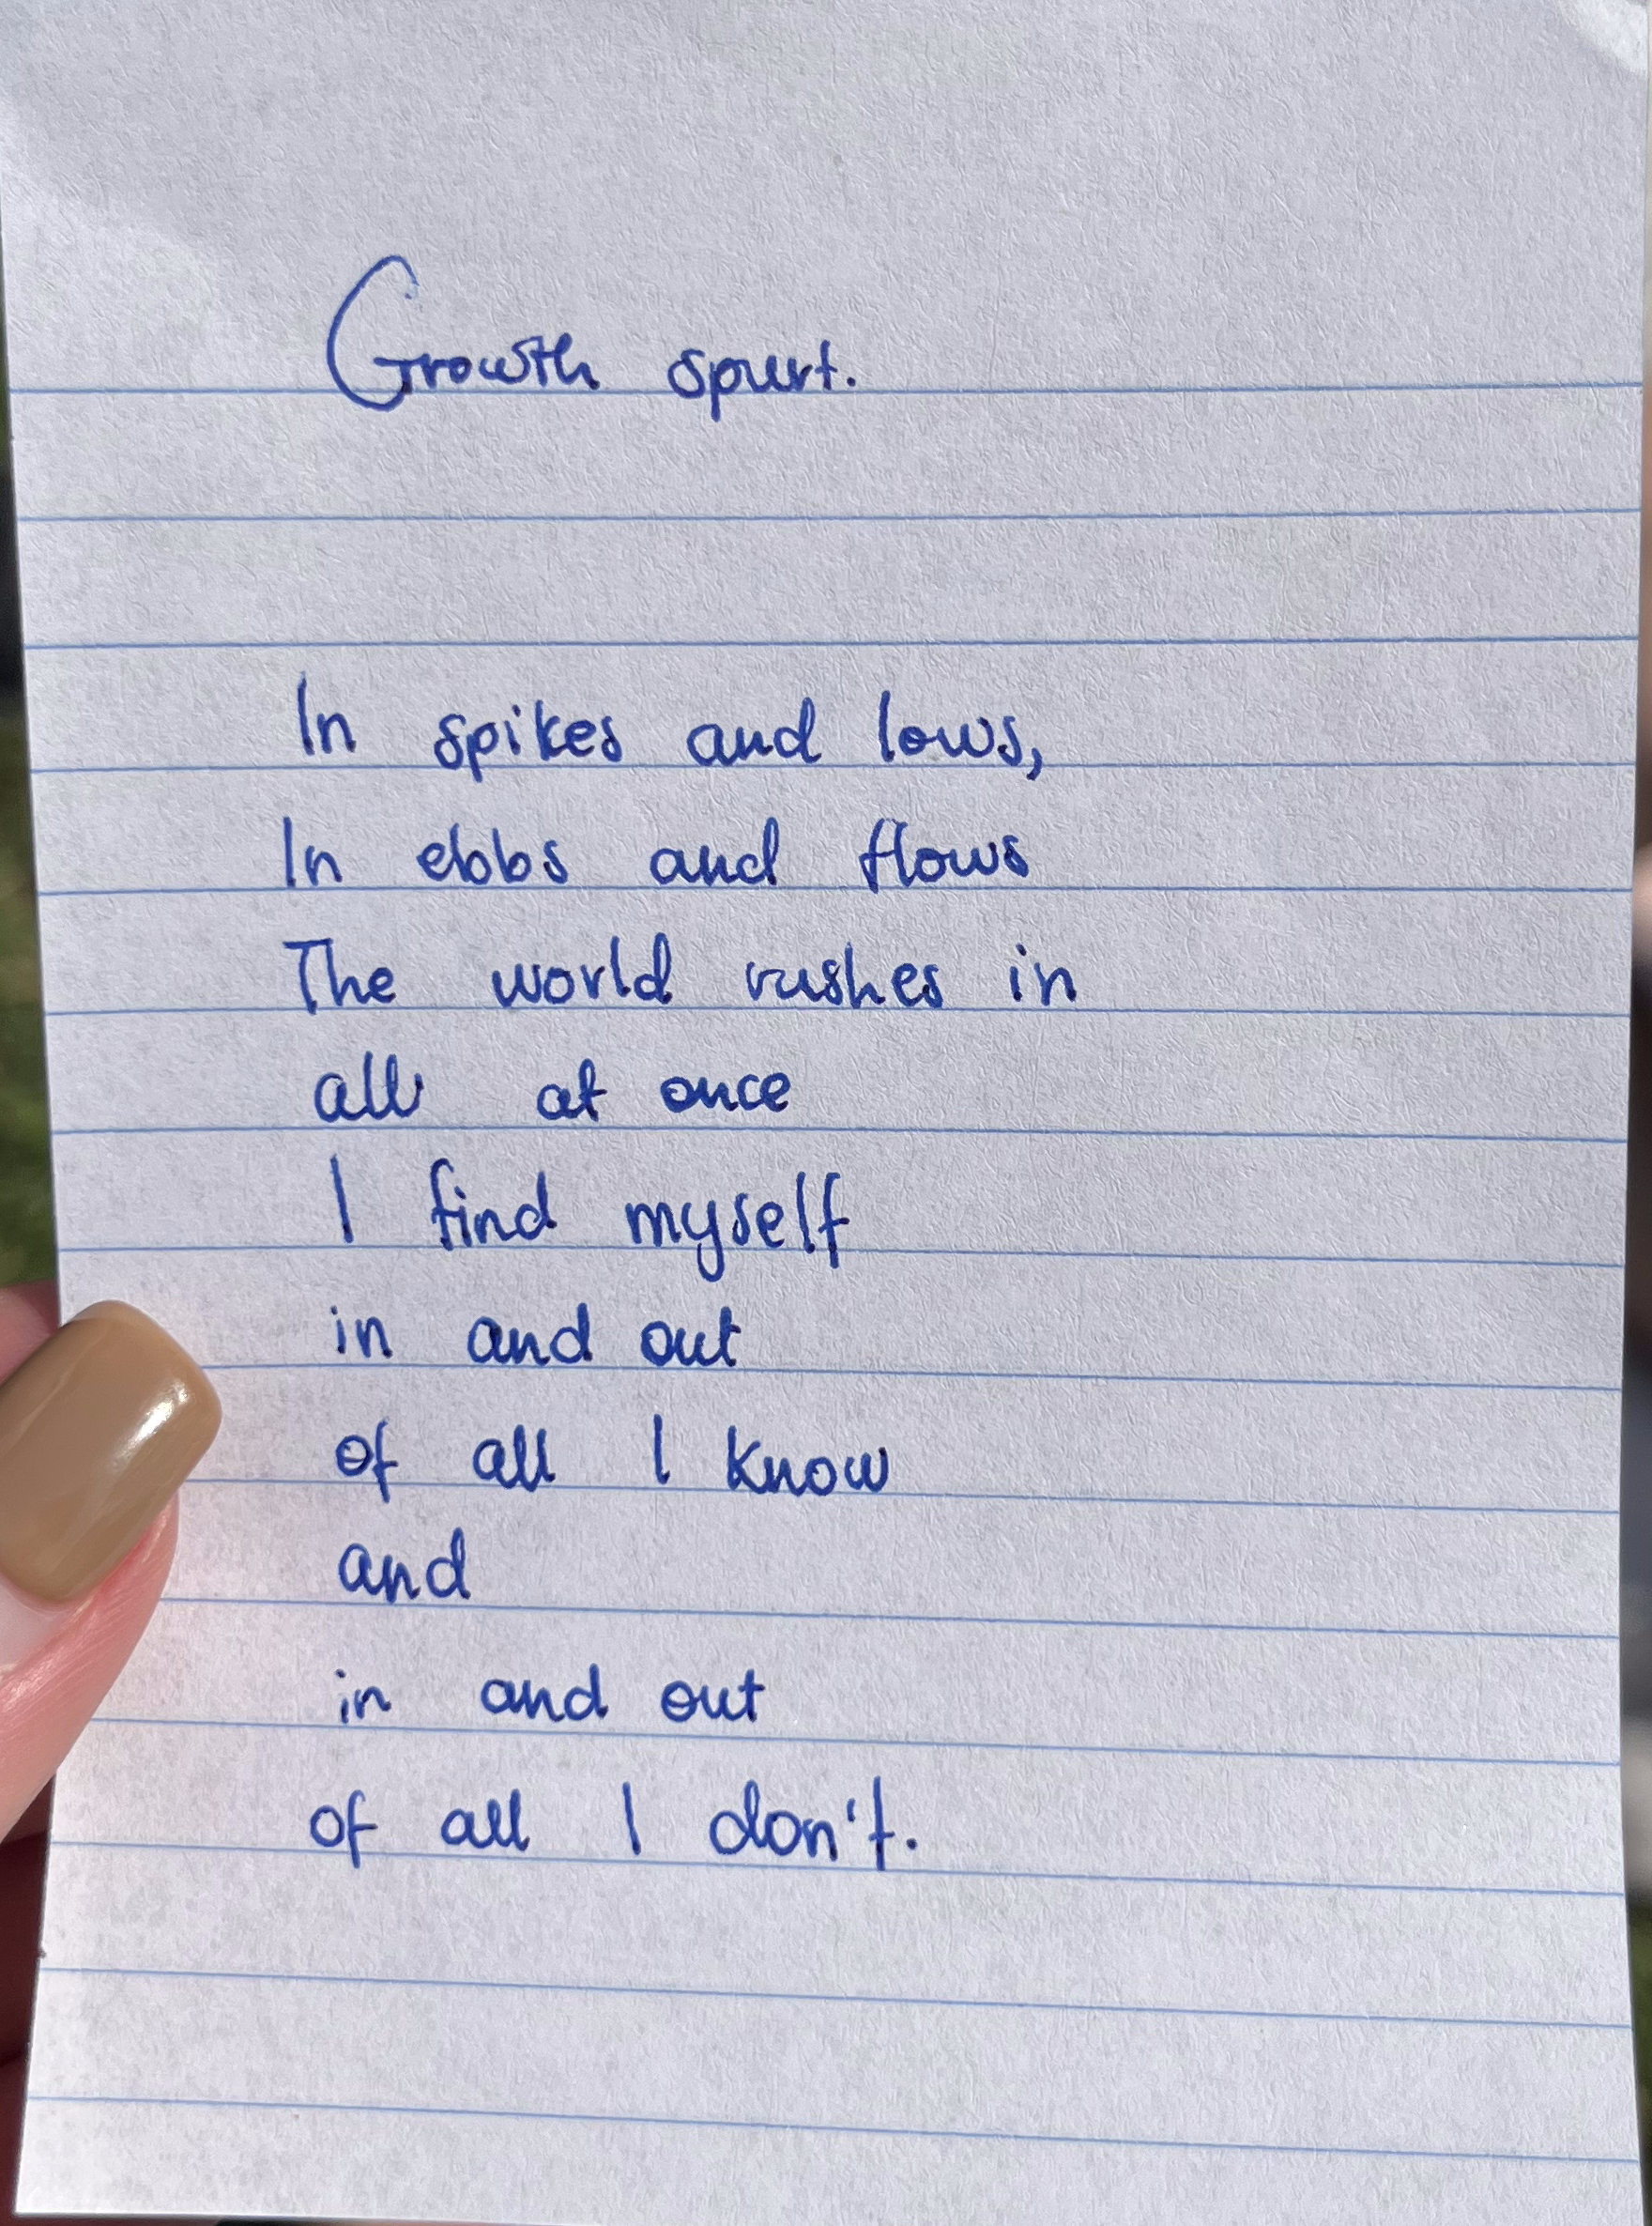 Growth spurt.
In spikes and lows,
In ebbs and flows
The world rushes in
all at once
I find myself
in and out
of all I know
and
in and out
of all I don't.